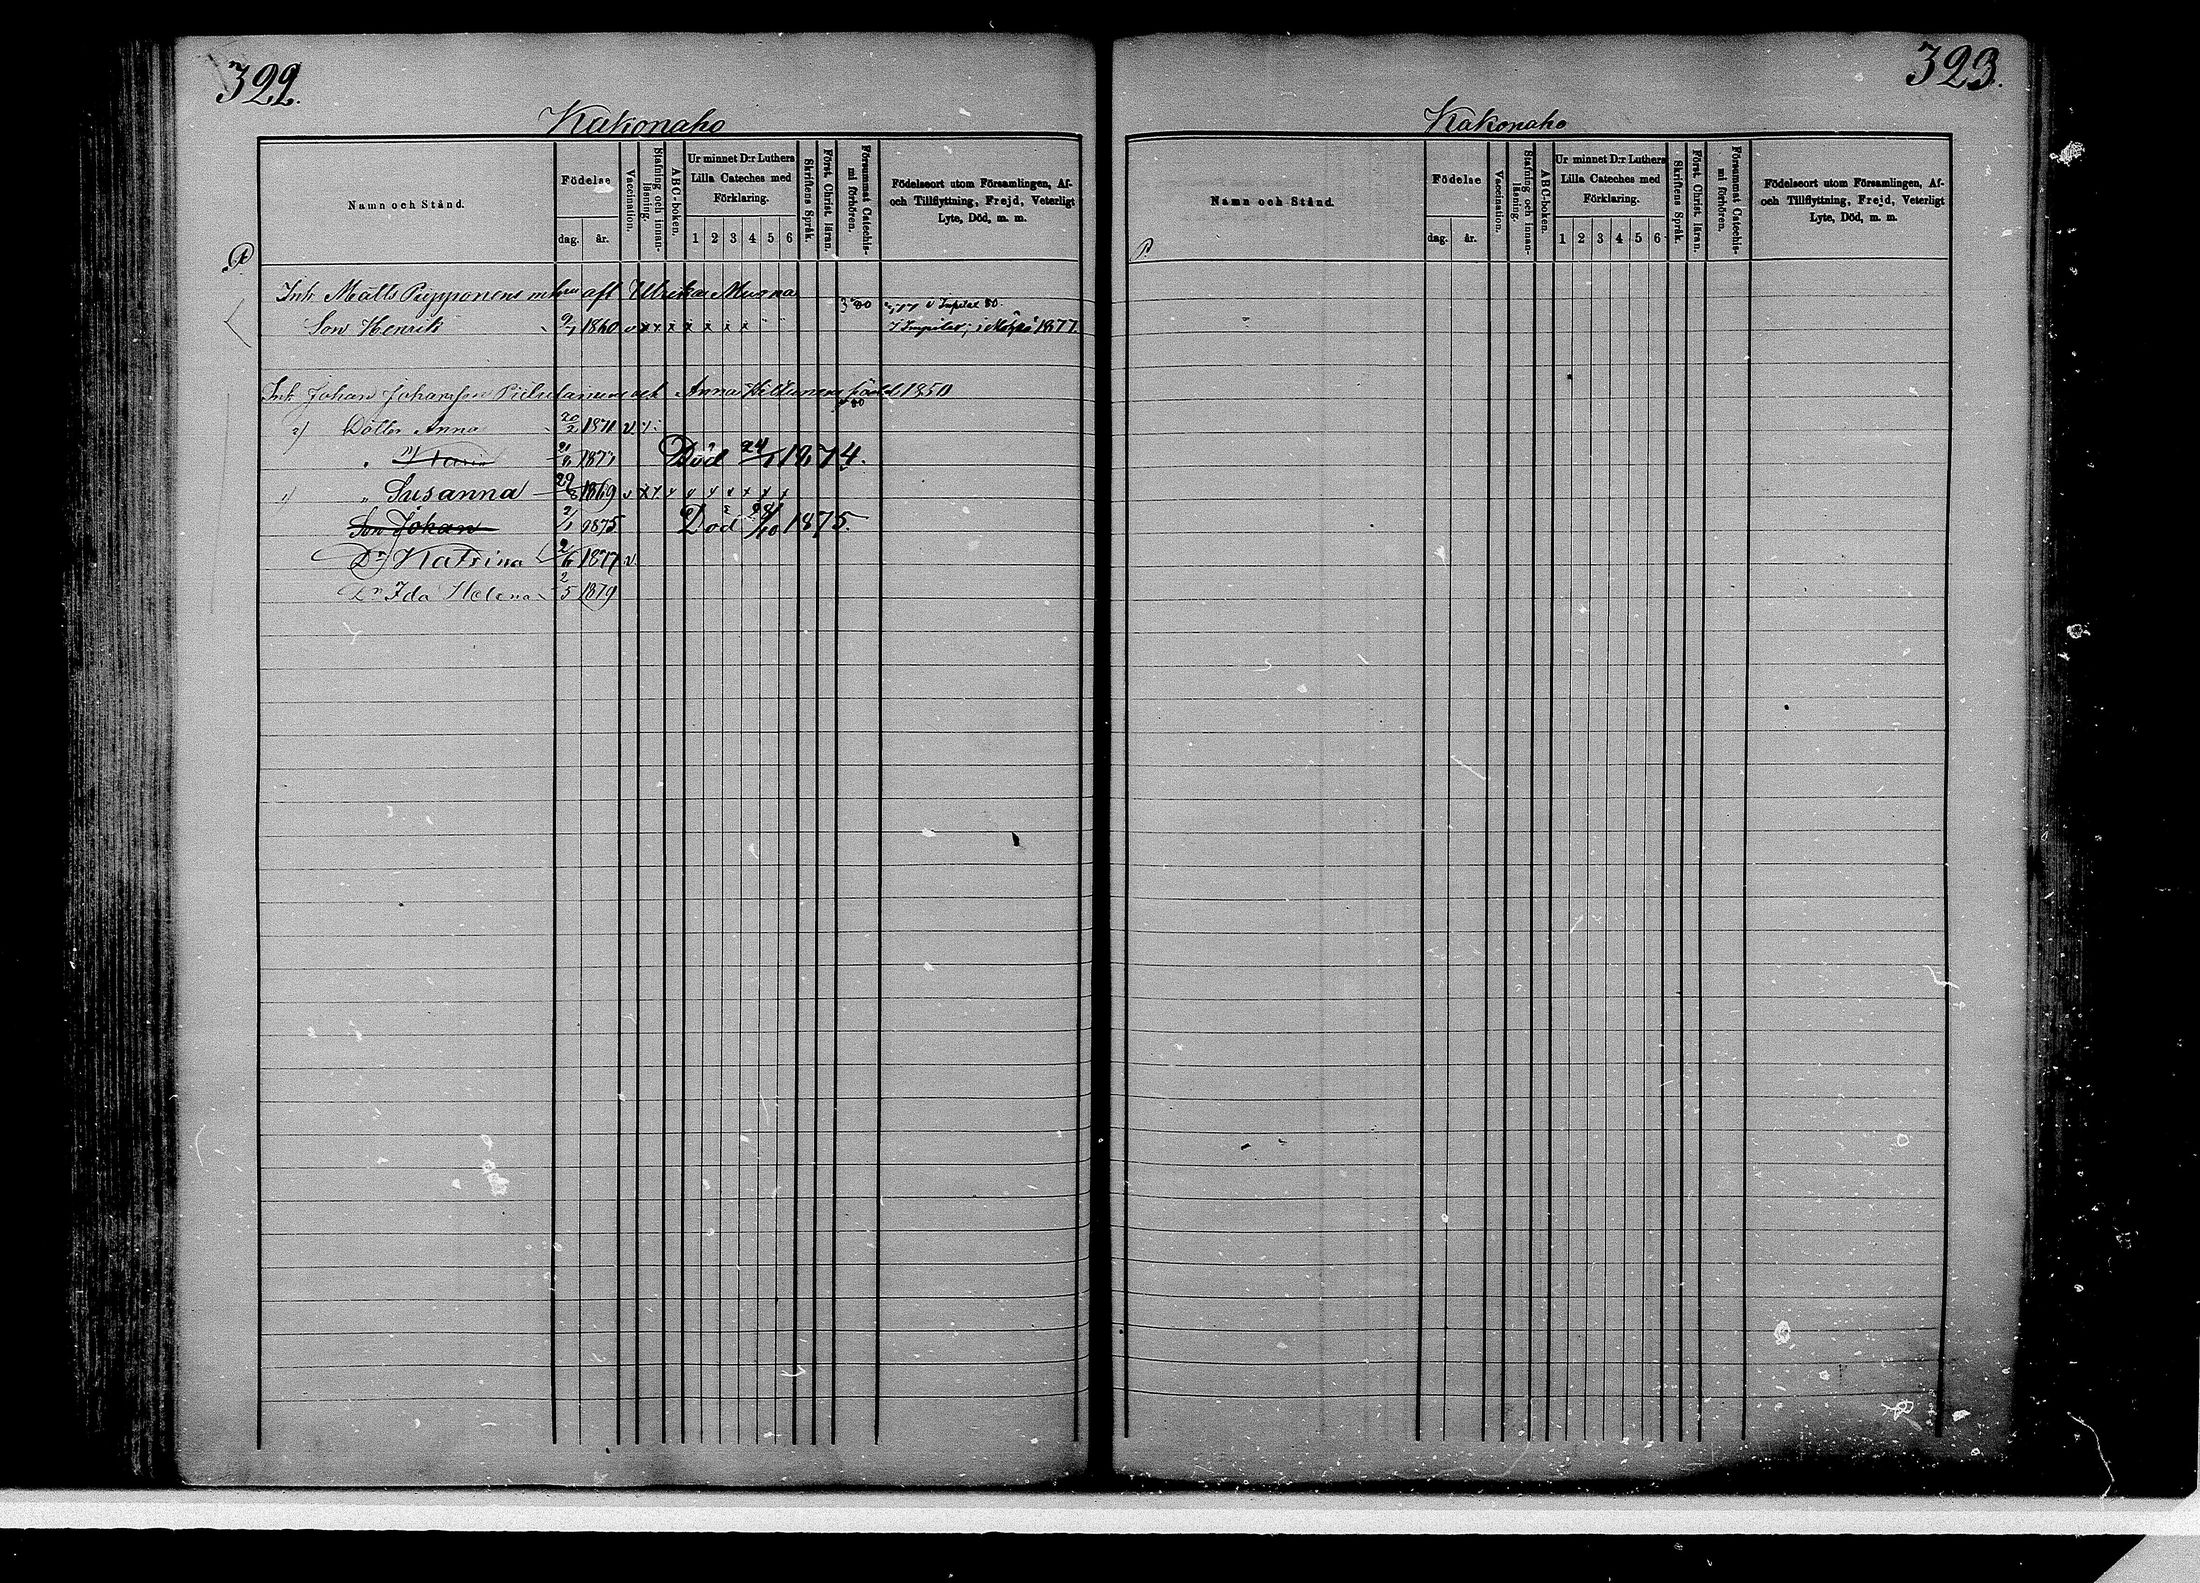 322.
Kakonaho
Namn och Stånd.
Födelse
dag. år.
Vaccination.
Stafning och innan-läsning.
ABC-boken.
Ur minnet D:r Luthers
Lilla Cateches med
Förklaring.
1 2 3 4 5 6
Skriftens Språk.
Först. Christ. läran.
Försummat Catechis-mi förhören.
Födelseort utom Församlingen, Af-
och Tillflyttning, Frejd, Veterligt
Lyte, Död, m. m.
Inh Matts Pupponens aft Ulrika Muona
Son Henrik 9/1 1860 v x x x x x x x 1877.
Inh Johan Johansson och Anna född 1850
2) Dotter Anna 20/2 1871 v.
" 187 Död 24/1 1874.
" Susanna 29/8 1869 v x x x x x x x x x
Son Johan 2/1 1875 Död 28/10 1875.
Dr Katrina 2/6 1877 v.
Dr Ida Helena 2/5 1879
323.
Kakonaho
Namn och Stånd.
Födelse
dag. år.
Vaccination.
Stafning och innan-läsning.
ABC-boken.
Ur minnet D:r Luthers
Lilla Cateches med
Förklaring.
1 2 3 4 5 6
Skriftens Språk.
Först. Christ. läran.
Försummat Catechis-mi förhören.
Födelseort utom Församlingen, Af-
och Tillflyttning, Frejd, Veterligt
Lyte, Död, m. m.